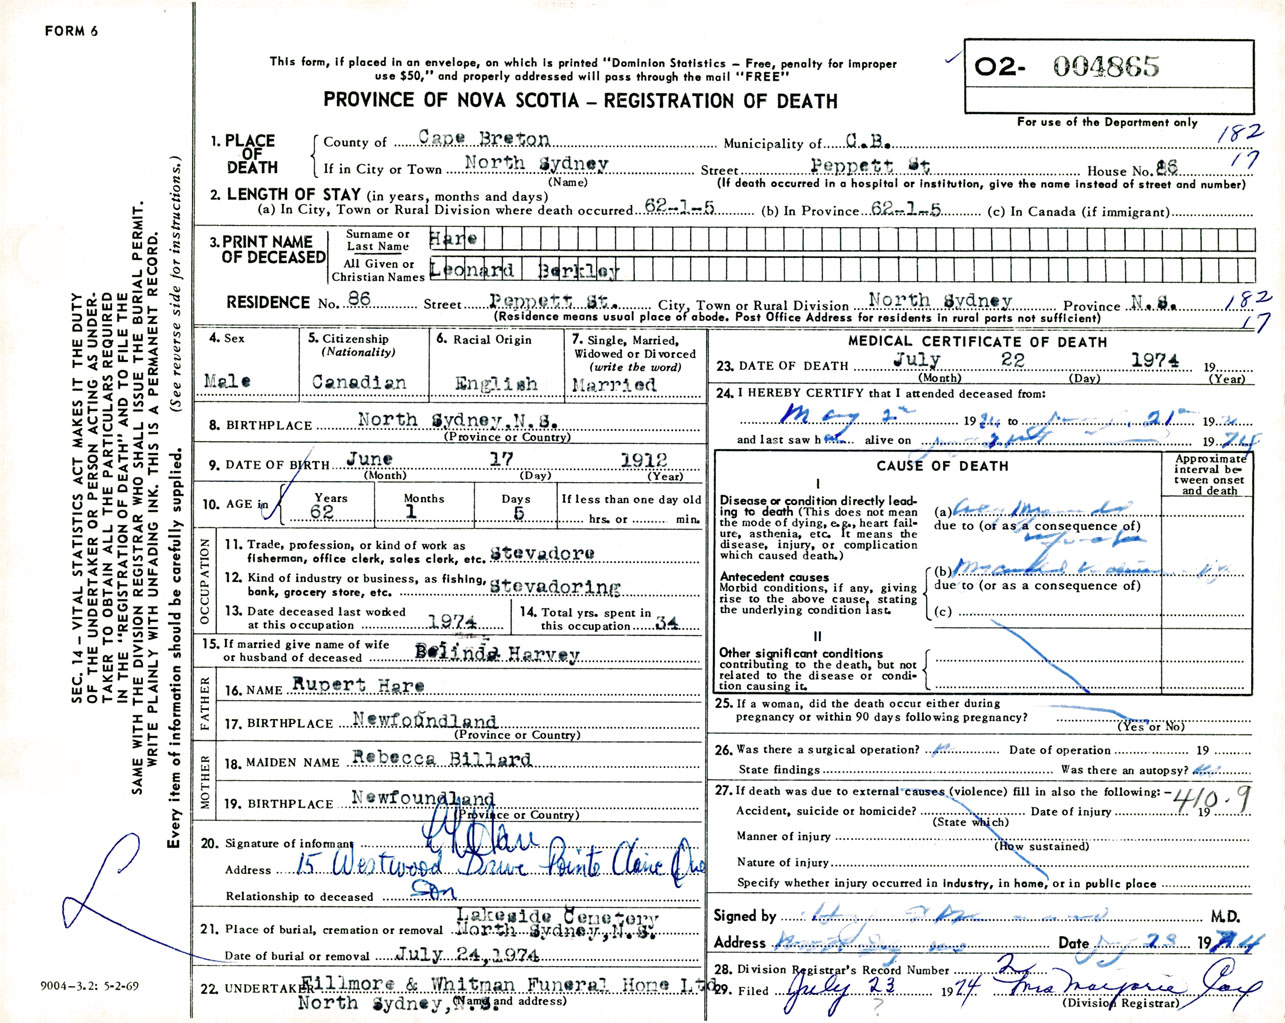 FORM 6
This form, if placed in an envelope, on which is printed "Dominion Statistics – Free, penalty for improper
use $50," and properly addressed will pass through the mail "FREE"
PROVINCE OF NOVA SCOTIA – REGISTRATION OF DEATH
O2- 004865
For use of the Department only
182
17
1. PLACE OF DEATH
County of Cape Breton Municipality of C.B.
If in City or Town North Sydney Street Peppett St House No. 86
(Name) (If death occurred in a hospital or institution, give the name instead of street and number)
2. LENGTH OF STAY (in years, months and days)
(a) In City, Town or Rural Division where death occurred 62-1-5 (b) In Province 62-1-5 (c) In Canada (if immigrant)
3. PRINT NAME OF DECEASED
Surname or Last Name Hare
All Given or Christian Names Leonard Berkley
RESIDENCE No. 86 Street Peppett St. City, Town or Rural Division North Sydney Province N.S.
(Residence means usual place of abode. Post Office Address for residents in rural parts not sufficient)
182
17
4. Sex
Male
5. Citizenship
(Nationality)
Canadian
6. Racial Origin
English
7. Single, Married,
Widowed or Divorced
(write the word)
Married
8. BIRTHPLACE North Sydney, N.S.
(Province or Country)
9. DATE OF BIRTH June 17 1912
(Month) (Day) (Year)
10. AGE in
Years 62
Months 1
Days 5
If less than one day old
hrs. or min.
OCCUPATION
11. Trade, profession, or kind of work as
fisherman, office clerk, sales clerk, etc. Stevadore
12. Kind of industry or business, as fishing,
bank, grocery store, etc. Stevadoring
13. Date deceased last worked
at this occupation 1974
14. Total yrs. spent in
this occupation 34
15. If married give name of wife
or husband of deceased Belinda Harvey
FATHER
16. NAME Rupert Hare
17. BIRTHPLACE Newfoundland
(Province or Country)
MOTHER
18. MAIDEN NAME Rebecca Billard
19. BIRTHPLACE Newfoundland
(Province or Country)
20. Signature of informant Hare
Address 15 Westwood Drive Pointe Claire Que
Relationship to deceased Son
21. Place of burial, cremation or removal Lakeside Cemetery
North Sydney, N.S.
Date of burial or removal July 24, 1974
22. UNDERTAKER Fillmore & Whitman Funeral Home Ltd
North Sydney, N.S.
(Name and address)
MEDICAL CERTIFICATE OF DEATH
23. DATE OF DEATH July 22 1974 19
(Month) (Day) (Year)
24. I HEREBY CERTIFY that I attended deceased from:
May 19 to 21 19
and last saw h alive on 1974
CAUSE OF DEATH
Approximate
interval be-
tween onset
and death
I
Disease or condition directly lead-
ing to death (This does not mean
the mode of dying, e.g., heart fail-
ure, asthenia, etc. It means the
disease, injury, or complication
which caused death.)
(a)
due to (or as a consequence of)
Antecedent causes
Morbid conditions, if any, giving
rise to the above cause, stating
the underlying condition last.
(b)
due to (or as a consequence of)
(c)
II
Other significant conditions
contributing to the death, but not
related to the disease or condi-
tion causing it.
25. If a woman, did the death occur either during
pregnancy or within 90 days following pregnancy?
(Yes or No)
26. Was there a surgical operation? Date of operation 19
State findings Was there an autopsy?
27. If death was due to external causes (violence) fill in also the following: –
410.9
Accident, suicide or homicide? Date of injury 19
(State which)
Manner of injury
(How sustained)
Nature of injury
Specify whether injury occurred in Industry, in home, or in public place
Signed by M.D.
Address Date 23 1974
28. Division Registrar's Record Number
29. Filed July 23 1974 Mrs Marjorie
(Division Registrar)
SEC. 14 – VITAL STATISTICS ACT MAKES IT THE DUTY
OF THE UNDERTAKER OR PERSON ACTING AS UNDER-
TAKER TO OBTAIN ALL THE PARTICULARS REQUIRED
IN THE "REGISTRATION OF DEATH" AND TO FILE THE
SAME WITH THE DIVISION REGISTRAR WHO SHALL ISSUE THE BURIAL PERMIT.
WRITE PLAINLY WITH UNFADING INK. THIS IS A PERMANENT RECORD.
Every item of information should be carefully supplied. (See reverse side for instructions.)
9004-3.2: 5-2-69